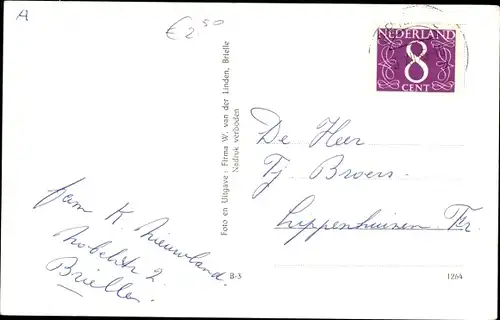 A
€ 2 50
NEDERLAND
8
CENT
Foto en Uitgave: Firma W. van der Linden, Brielle
Nadruk verboden
De Heer
Tj Broers.
Lippenhuizen Fr.
fam K. Nieuwland.
Nobelstr 2.
Brielle.
B-3
1264